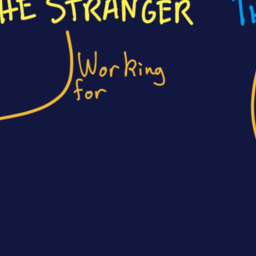 THE STRANGER
Working
for